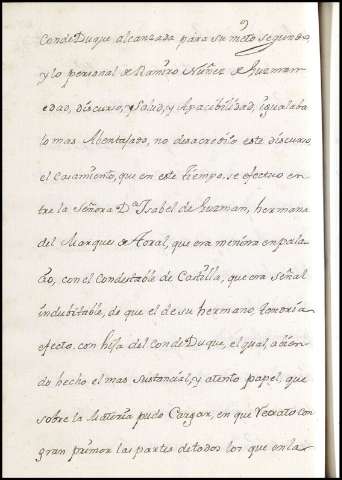 Conde Duque alcanzada para su nieto segundo,
y lo personal de Ramiro Nuñez de Guzman
edad, discurso, y salud, y Apacibilidad, igualaba
lo mas Abentajado, no desacredito este discurso
el Casamiento, que en este tiempo, se efectuo en
tre la Señora Dª Isabel de Guzman, hermana
del Marques de Toral, que era menina en pala
cio, con el Condestable de Castilla, que era señal
indubitable, de que el de su hermano, tomaria
efecto. con hija del Conde Duque, el qual, abien
do hecho el mas sustancial, y atento papel, que
sobre la Materia pudo Cargar, en que Retrato con
gran primor las partes de todos los que en la